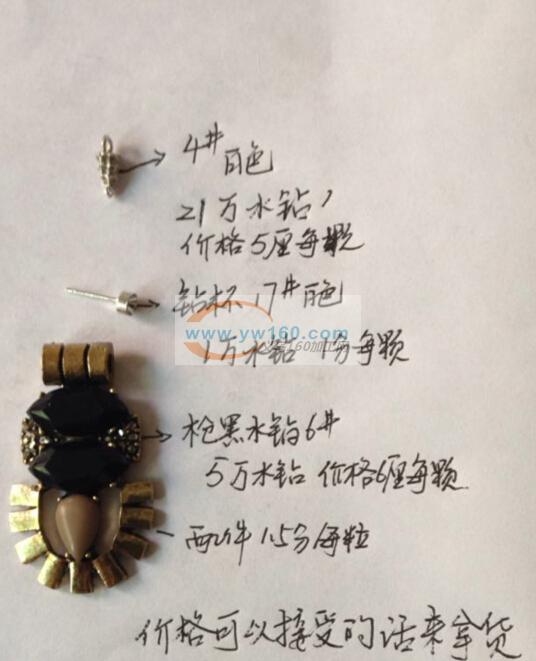 4# 白色
21万水钻,
价格5厘每颗
钻杯 17#白色
www.yw160.com
1万水钻 1分每颗
枪黑水钻6#
5万水钻 价格6厘每颗
配件 1.5分每粒
价格可以接受的话来拿货